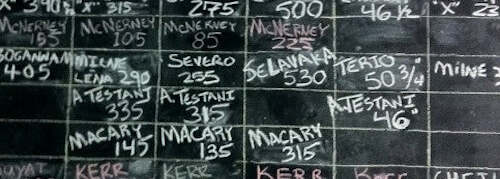 "X" 390 "X" 315 275 500 46 1/2 "X" 23
McNERNEY McNERNEY McNERNEY McNERNEY
155 105 85 225
BOGANWAM MILNE SEVERO SELAVAKA TERIO MILNE
405 LENA 290 255 530 50 3/4"
A.TESTANI A.TESTANI A.TESTANI
335 315 46"
MACARY MACARY MACARY
145 135 315
KERR KERR KERR KERR